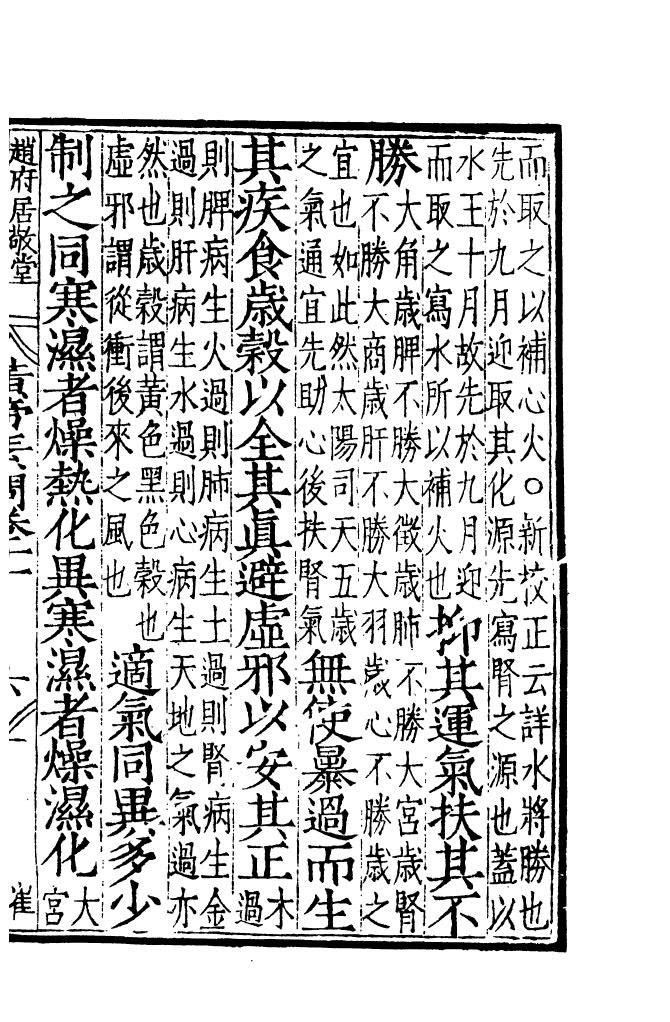 而取之以補心火○新校正云詳水將勝也
先於九月迎取其化源先寫腎之源也蓋以
水王十月故先於九月迎
而取之寫水所以補火也
抑其運氣扶其不
勝
大角歲脾不勝大徵歲肺不勝大宮歲腎
不勝大商歲肝不勝大羽歲心不勝歲之
宜也如此然太陽司天五歲
之氣通宜先助心後扶腎氣
無使暴過而生
其疾食歲穀以全其眞避虛邪以安其正
木
過
則脾病生火過則肺病生土過則腎病生金
過則肝病生水過則心病生天地之氣過亦
然也歲穀謂黃色黑色穀也
虛邪謂從衝後來之風也
適氣同異多少
制之同寒濕者燥熱化異寒濕者燥濕化
大
宮
趙府居敬堂
崔